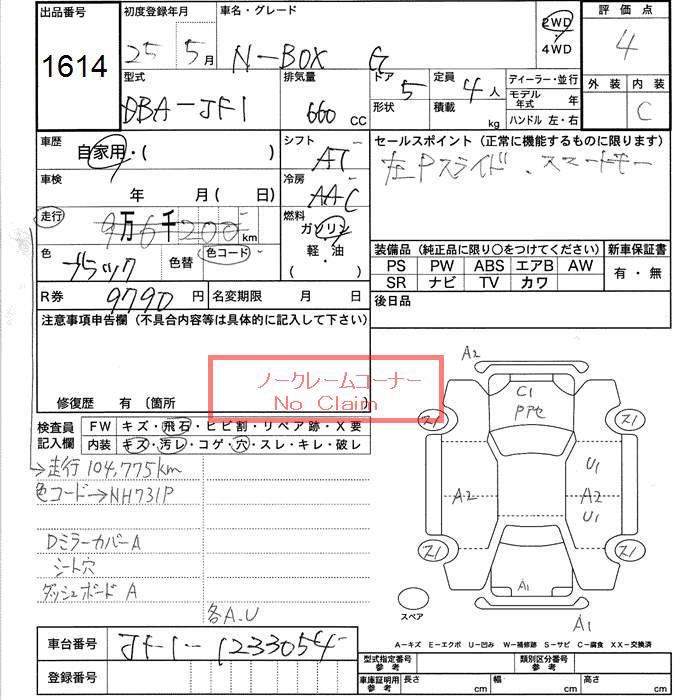 出品番号 1614
初度登録年月 25 5月
車名・グレード N-BOX G
2WD・4WD
評価点 4
外装 内装 C
型式 DBA-JF1
排気量 660 CC
ドア 5
形状
定員 4 人
積載 kg
ディーラー・並行
モデル年式 年
ハンドル 左・右
車歴 自家用・( )
シフト AT
セールスポイント(正常に機能するものに限ります)
左Pスライド、スマートキー
車検 年 月( 日)
冷房 AAC
走行 9万6千200km
燃料 ガソリン・軽・油・( )
色 ブラック 色替 (色コード )
装備品(純正品に限り○をつけてください) 新車保証書
PS PW ABS エアB AW
SR ナビ TV カワ
有・無
R券 9790円 名変期限 月 日
後日品
注意事項申告欄(不具合内容等は具体的に記入して下さい)
ノークレームコーナー
No Claim
修復歴 有〔箇所
検査員記入欄
FW キズ・飛石・ヒビ割・リペア跡・X要
内装 キズ・汚レ・コゲ・穴・スレ・キレ・破レ
→走行 104,775km
色コード→NH731P
Dミラーカバー A
シート穴
ダッシュボード A
各A.U
A2
C1
PPセ
A2
U1
A2
U1
A1
A1
スペア
A-キズ E-エクボ U-凹み W-補修跡 S-サビ C-腐食 XX-交換済
車台番号 JF1-1233054
登録番号
型式指定番号 参考
類別区分番号 参考
車庫証明用 参考 長さ cm 幅 cm 高さ cm